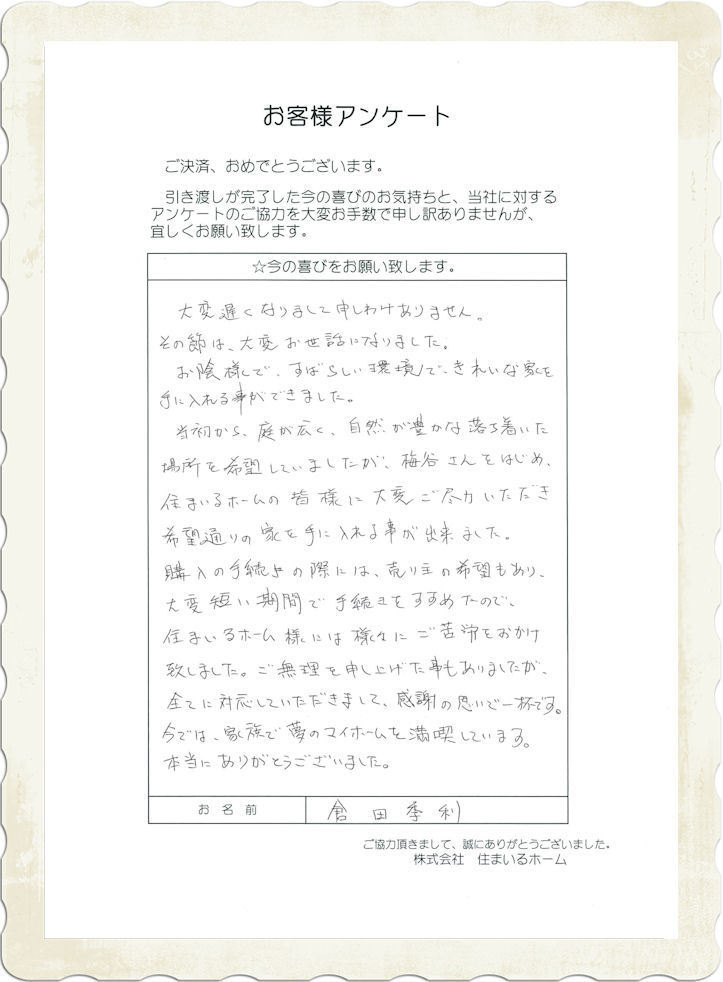 お客様アンケート
ご決済、おめでとうございます。
引き渡しが完了した今の喜びのお気持ちと、当社に対する
アンケートのご協力を大変お手数で申し訳ありませんが、
宜しくお願い致します。
☆今の喜びをお願い致します。
大変遅くなりまして申しわけありません。
その節は、大変お世話になりました。
お陰様で、すばらしい環境で、きれいな家を
手に入れる事ができました。
当初から、庭が広く、自然が豊かな落ち着いた
場所を希望していましたが、梅谷さんをはじめ、
住まいるホームの皆様に大変ご尽力いただき
希望通りの家を手に入れる事が出来ました。
購入の手続きの際には、売り主の希望もあり、
大変短い期間で手続きをすすめたので、
住まいるホーム様には様々にご苦労をおかけ
致しました。ご無理を申し上げた事もありましたが、
全てに対応していただきまして、感謝の思いで一杯です。
今では、家族で夢のマイホームを満喫しています。
本当にありがとうございました。
お名前
倉田季利
ご協力頂きまして、誠にありがとうございました。
株式会社 住まいるホーム